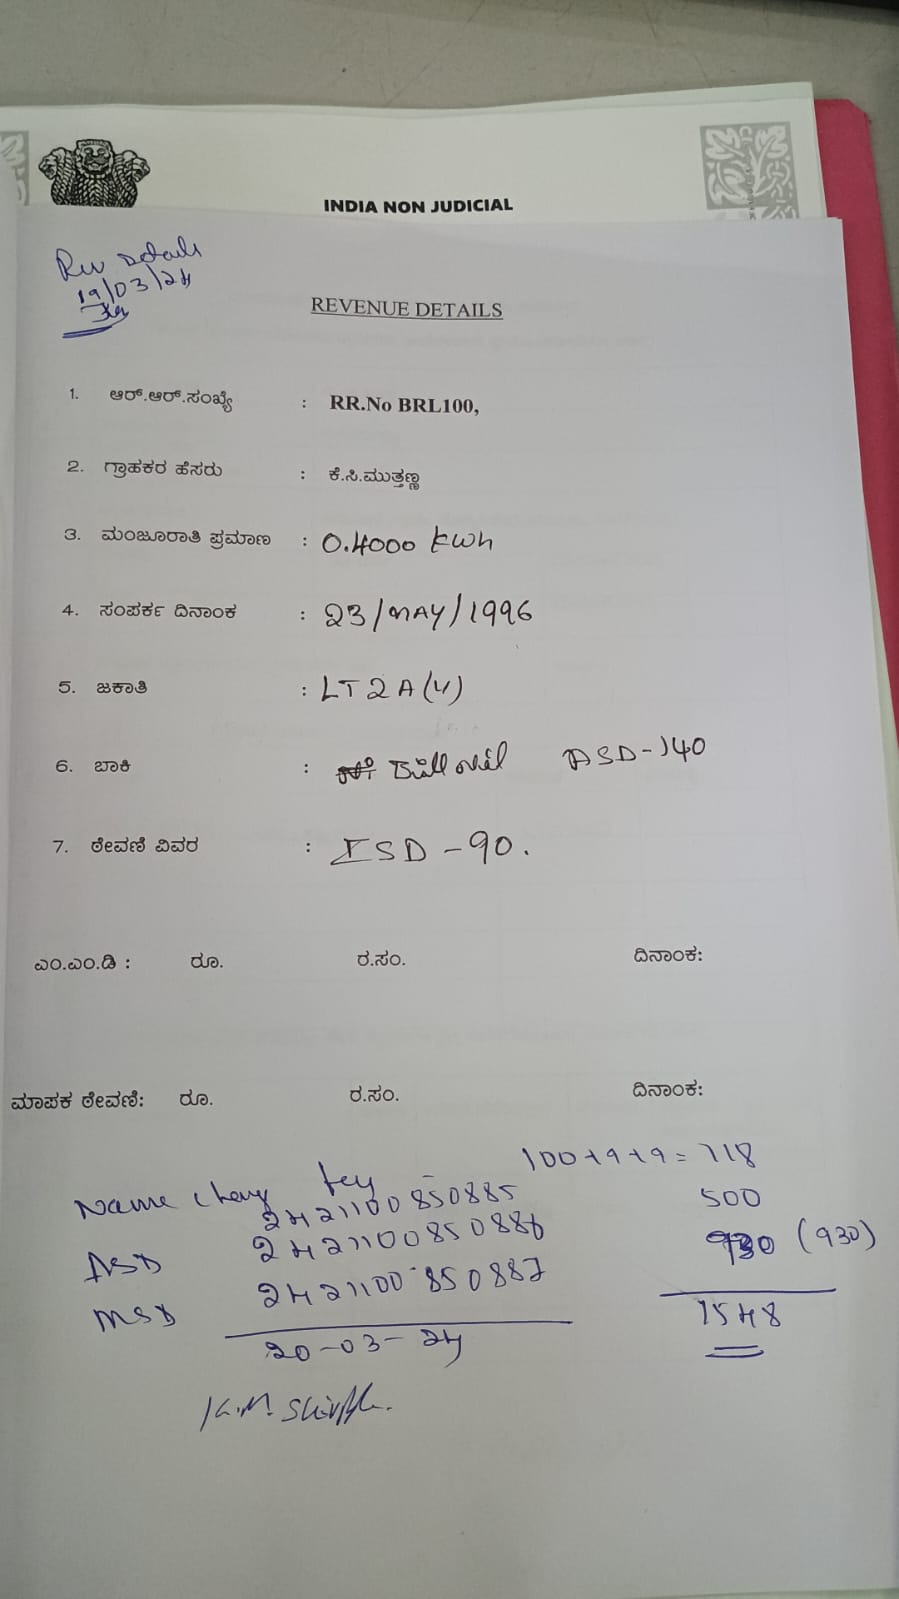 INDIA NON JUDICIAL
Rev Details
19/03/24
REVENUE DETAILS
1. ಆರ್.ಆರ್.ಸಂಖ್ಯೆ : RR.No BRL100,
2. ಗ್ರಾಹಕರ ಹೆಸರು : ಕೆ.ಸಿ.ಮುತ್ತಣ್ಣ
3. ಮಂಜೂರಾತಿ ಪ್ರಮಾಣ : 0.4000 kwh
4. ಸಂಪರ್ಕ ದಿನಾಂಕ : 23/MAY/1996
5. ಜಕಾತಿ : LT2A(4)
6. ಬಾಕಿ : Bill Nil ASD-140
7. ಠೇವಣಿ ವಿವರ : ISD-90.
ಎಂ.ಎಂ.ಡಿ : ರೂ. ರ.ಸಂ. ದಿನಾಂಕ:
ಮಾಪಕ ಠೇವಣಿ: ರೂ. ರ.ಸಂ. ದಿನಾಂಕ:
Name chang fey - 100+9+9= 118
2421100850885 500
ASD 2421100850886 930 (930)
MSD 2421100850887
1548
20-03-24